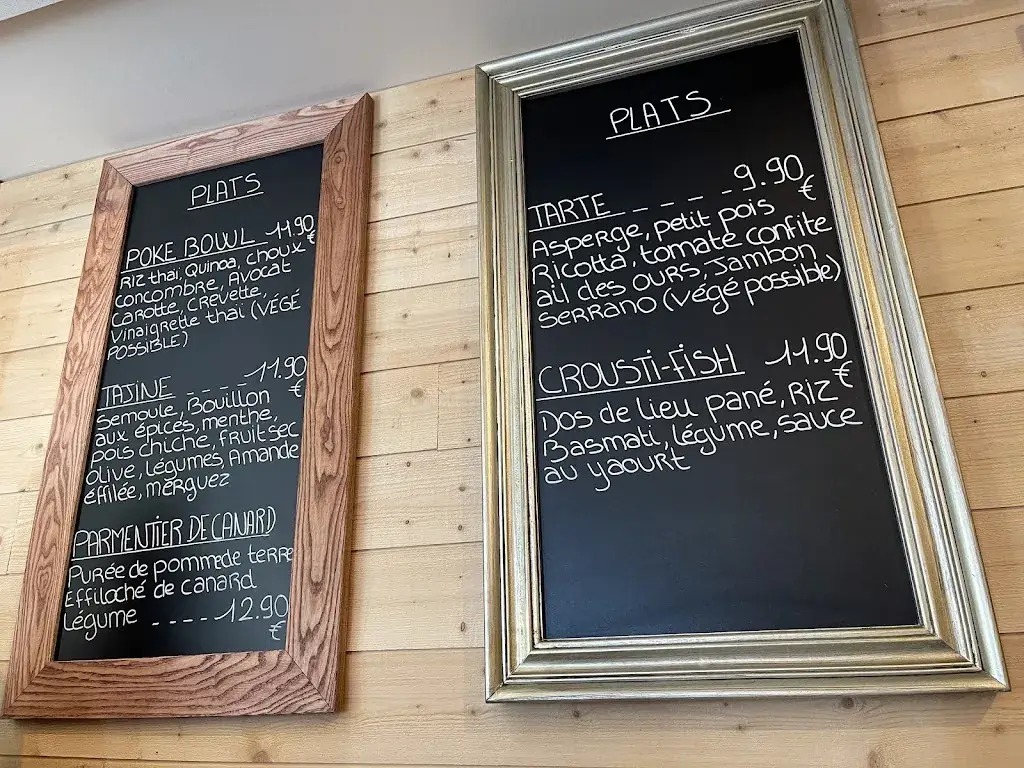 PLATS
POKE BOWL 11.90
€
Riz thai, Quinoa, choux
concombre, Avocat
Carotte, Crevette,
Vinaigrette thai (VÉGÉ
POSSIBLE)
TAJINE _ _ _ _ 11.90
€
Semoule, Bouillon
aux épices, menthe,
pois chiche, fruit sec
olive, légumes, Amande
éffilée, mérguez
PARMENTIER DE CANARD
Purée de pomme de terre
Effiloché de canard
légume _ _ _ _ 12.90
€
PLATS
TARTE _ _ _ _ 9.90
€
Asperge, petit pois
Ricotta, tomate confite
ail des ours, Jambon
Serrano (végé possible)
CROUSTI-FISH 11.90
€
Dos de lieu pané, Riz
Basmati, légume, sauce
au yaourt